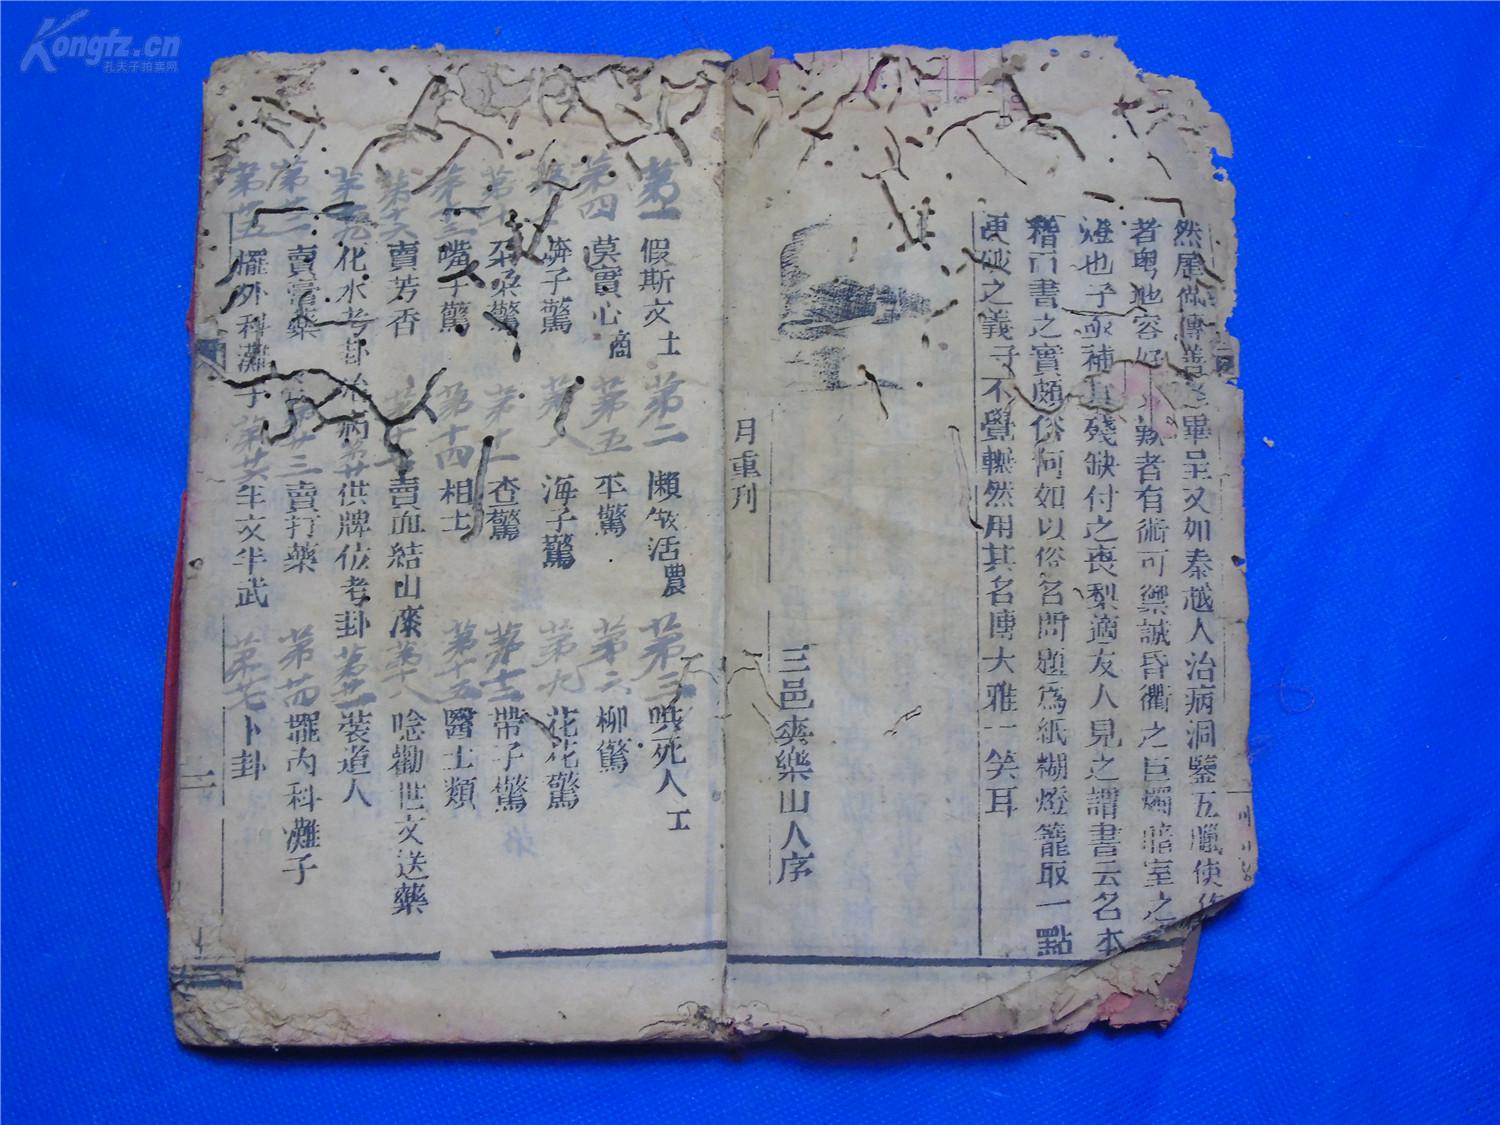 然歷做傳善畢呈又如秦越人治病洞鑒五臟使
者粵地容者有術可禦誠昏衢之巨燭暗室之
燈也予亟補其殘缺付之喪梨適友人見之謂書云名本
稽古書之實頗俗何如以俗名問題為紙糊燈籠取一點
更破之義予不覺輾然用其名傳大雅一笑耳
三邑爽樂山人序
月重刊
第一 假斯文士 第二 懶做活農 第三 哄死人工
第四 莫實心商 第五 丕驚 第六 柳驚
子驚 第八 海子驚 第九 花花驚
驚 第十一 查驚 第十二 帶子驚
第十三 嘴子驚 第十四 相士 第十五 醫士類
第十六 賣芳香 第十七 賣血結山漆 第十八 唸勸世文送藥
第十九 化水考卦治病 第廿 供牌位考卦 第廿一 裝道人
第廿二 賣膏藥 第廿三 賣打藥 第廿四 擺內科灘子
第廿五 擺外科灘子 第廿六 半文半武 第廿七 卜卦
二
Kongfz.cn
孔夫子拍卖网